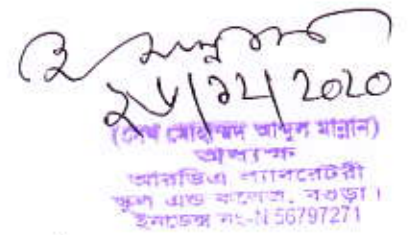 ২৮/১২/2020
(শেখ মোহাম্মদ আব্দুল মান্নান)
অধ্যক্ষ
আরডিএ ল্যাবরেটরী
স্কুল এন্ড কলেজ, বগুড়া।
ইনডেক্স নং-N 56797271